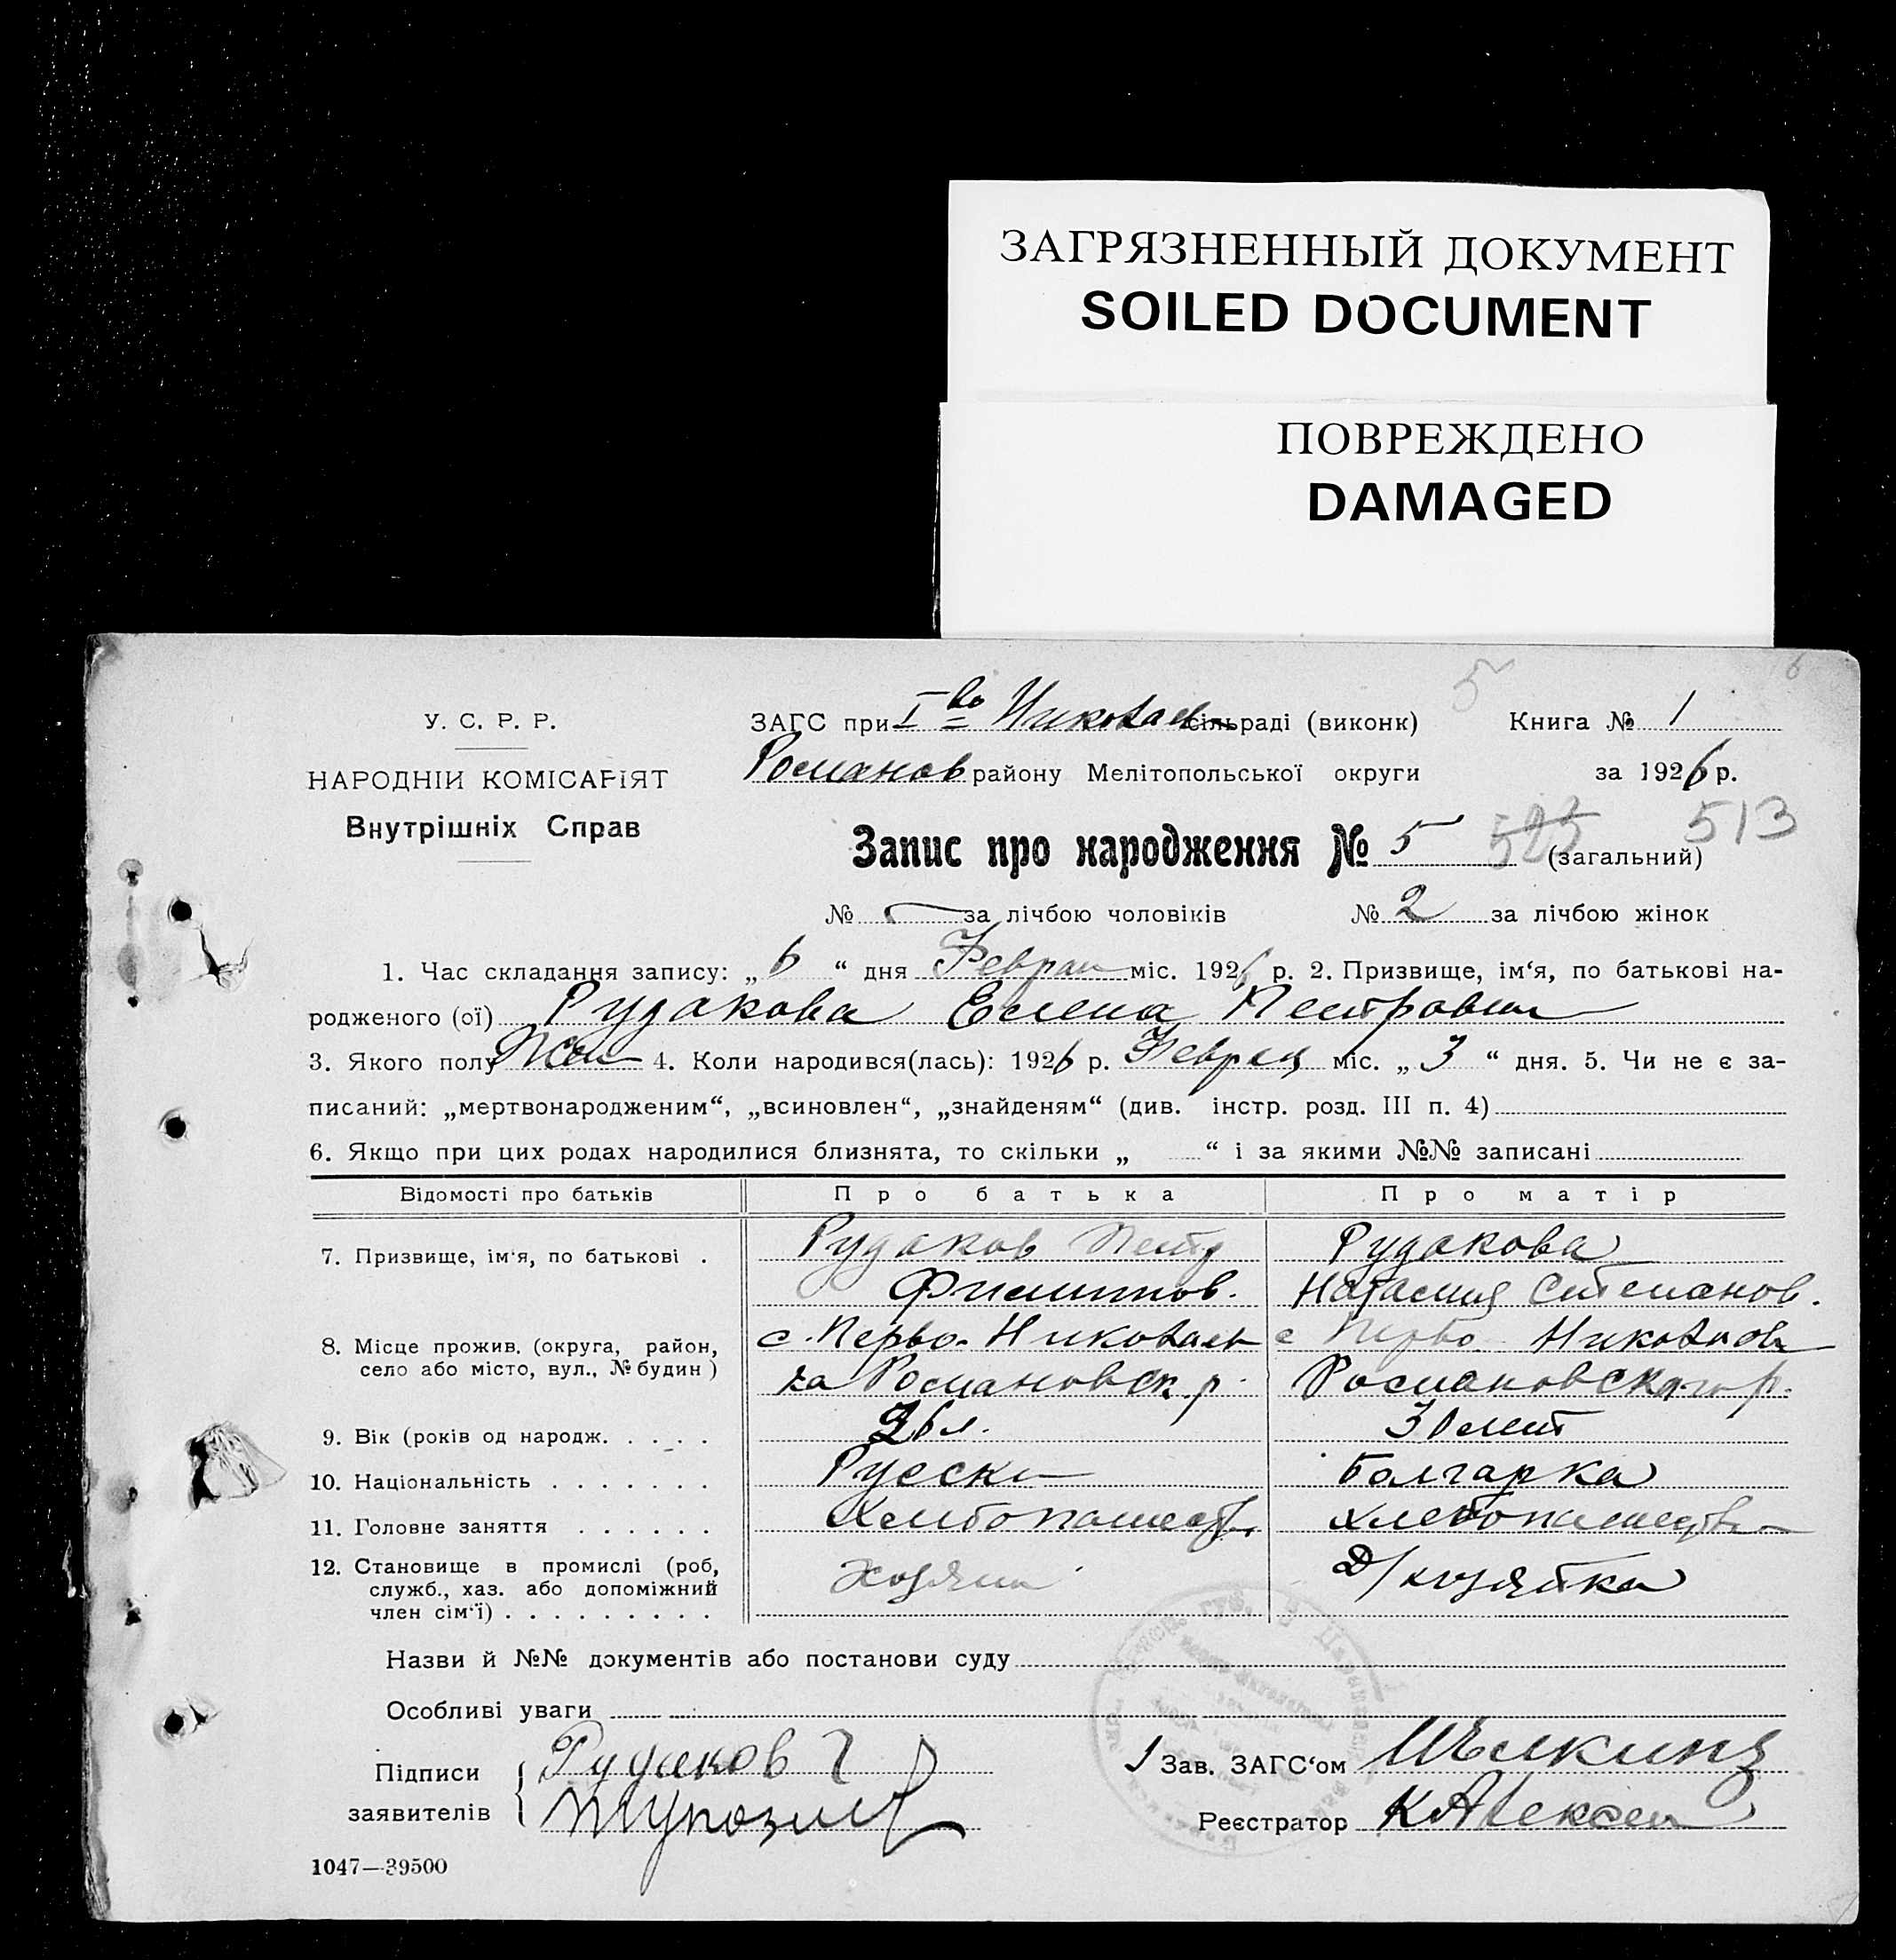 ЗАГРЯЗНЕННЫЙ ДОКУМЕНТ
SOILED DOCUMENT
ПОВРЕЖДЕНО
DAMAGED
5 6
У. С. Р. Р.
НАРОДНІЙ КОМІСАРІЯТ
Внутрішніх Справ
ЗАГС при I-во Николаев сільраді (виконк) Книга № 1
Романов району Мелітопольської округи за 1926 р.
Запис про народження № 5 525 (загальний) 513
№ за лічбою чоловіків № 2 за лічбою жінок
1. Час складання запису: „6“ дня Феврал міс. 1926 р. 2. Призвище, ім‘я, по батькові на-
родженого (ої) Рудакова Елена Петровна
3. Якого полу Жен 4. Коли народився(лась): 1926 р. Феврал міс. „3“ дня. 5. Чи не є за-
писаний: „мертвонародженим“, „всиновлен“, „знайденям“ (див. інстр. розд. III п. 4)
6. Якщо при цих родах народилися близнята, то скільки „ “ і за якими №№ записані
Відомості про батьків Про батька Про матір
7. Призвище, ім‘я, по батькові . Рудаков Петр Рудакова
Филиппов. Наталия Степанов.
8. Місце прожив. (округа, район, с. Перво-Николаев с Перво Николаев
село або місто, вул., № будин) ка Романовск. р. Романовского р.
9. Вік (років од народж. . . . . 36 л. 30 лет
10. Національність . . . . . . . Русски Болгарка
11. Головне заняття . . . . . . Хлебопашеств. хлебопашество
12. Становище в промислі (роб, Хозяин Д/хозяйка
служб., хаз. або допоміжний
член сім‘ї) . . . . . . . . .
Назви й №№ документів або постанови суду
Особливі уваги
Підписи Рудаков Зав. ЗАГС‘ом
заявителів Реєстратор К Алексеев
1047—39500